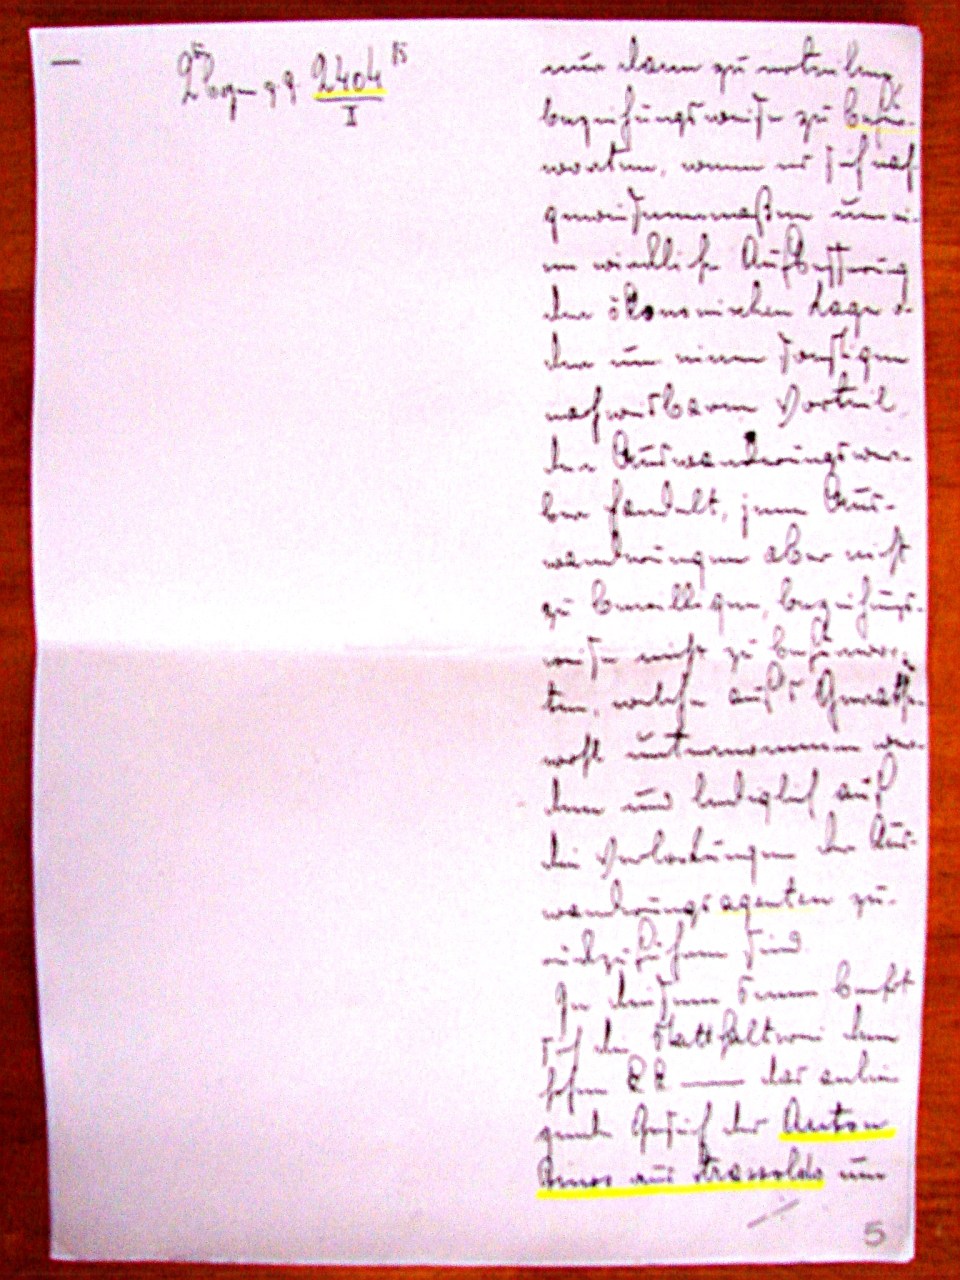 2 Bogen 2404
I
nur dann zu erteilen,
beziehungsweise zu befür-
worten, wenn es sich nach-
gewiesenermaßen um ei-
ne wirkliche Aufbesserung
der ökonomischen Lage o-
der um einen sonstigen
nachweisbaren Vorteil
der Auswanderungswer-
ber handelt, jene Aus-
wanderungen aber nicht
zu bewilligen, beziehungs-
weise nicht zu befürwor-
ten, welche aufs Gerathe-
wohl unternommen wer-
den und lediglich auf
die Verlockungen der Aus-
wanderungsagenten zu-
rückzuführen sind.
In diesem Sinne beehrt
sich die Statthalterei dem
hohen kk — das anlie
gende Gesuch des Anton
aus Strassoldo um
5